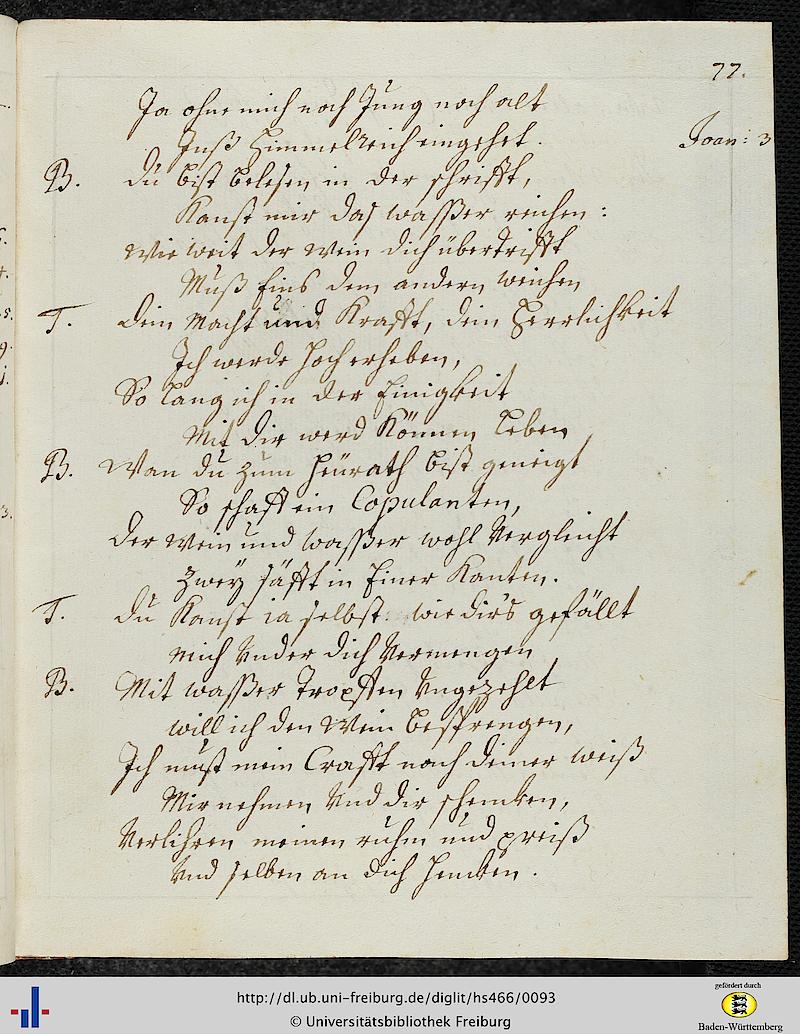 77.
Ja ohne mich noch Jung noch alt
Inß Himmelreich eingehet.
Joan: 3
B. Du bist belesen in der schrifft,
Kanst mir das wasser reichen:
Wie weit der Wein dich übertrifft
Muß Eins dem andern weichen
T. Dein Macht und Krafft, dein Herrlichkeit
Ich werde hoch erheben,
So lang ich in der Einigkeit
Mit dir werd können leben
B. Wan du zum heürath bist geneigt
So schaff ein Copulanten,
Der Wein und wasser wohl Vergleicht
Zwey säfft in Einer Kanten.
T. Du Kanst ia selbst wie dir's gefällt
Mich Vnder dich Vermengen
B. Mit wasser Tropffen Vngezehlt
will ich den Wein besprengen,
Ich must mein Crafft nach deiner weiß
Mir nehmen Vnd dir schencken,
Verlihren meinen ruhm und preiß
Vnd selben an dich hencken.
http://dl.ub.uni-freiburg.de/diglit/hs466/0093
© Universitätsbibliothek Freiburg
gefördert durch
Baden-Württemberg